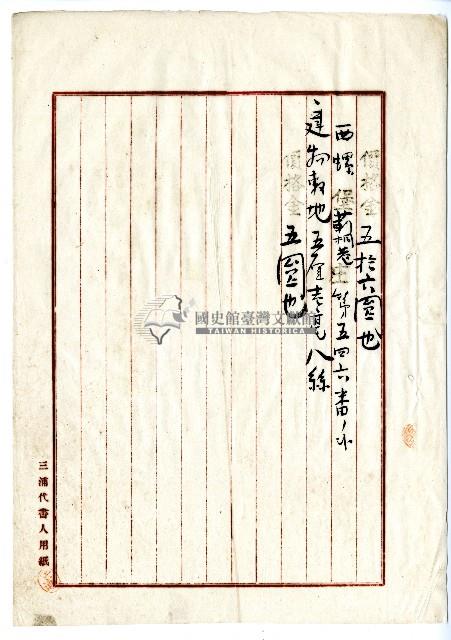 價格金五拾六圓也
西螺堡莿桐巷庄第五四六番ノ内
一建物敷地五厘壱毫八絲
價格金五圓也
三浦代書人用紙
國史館臺灣文獻館
TAIWAN HISTORICA